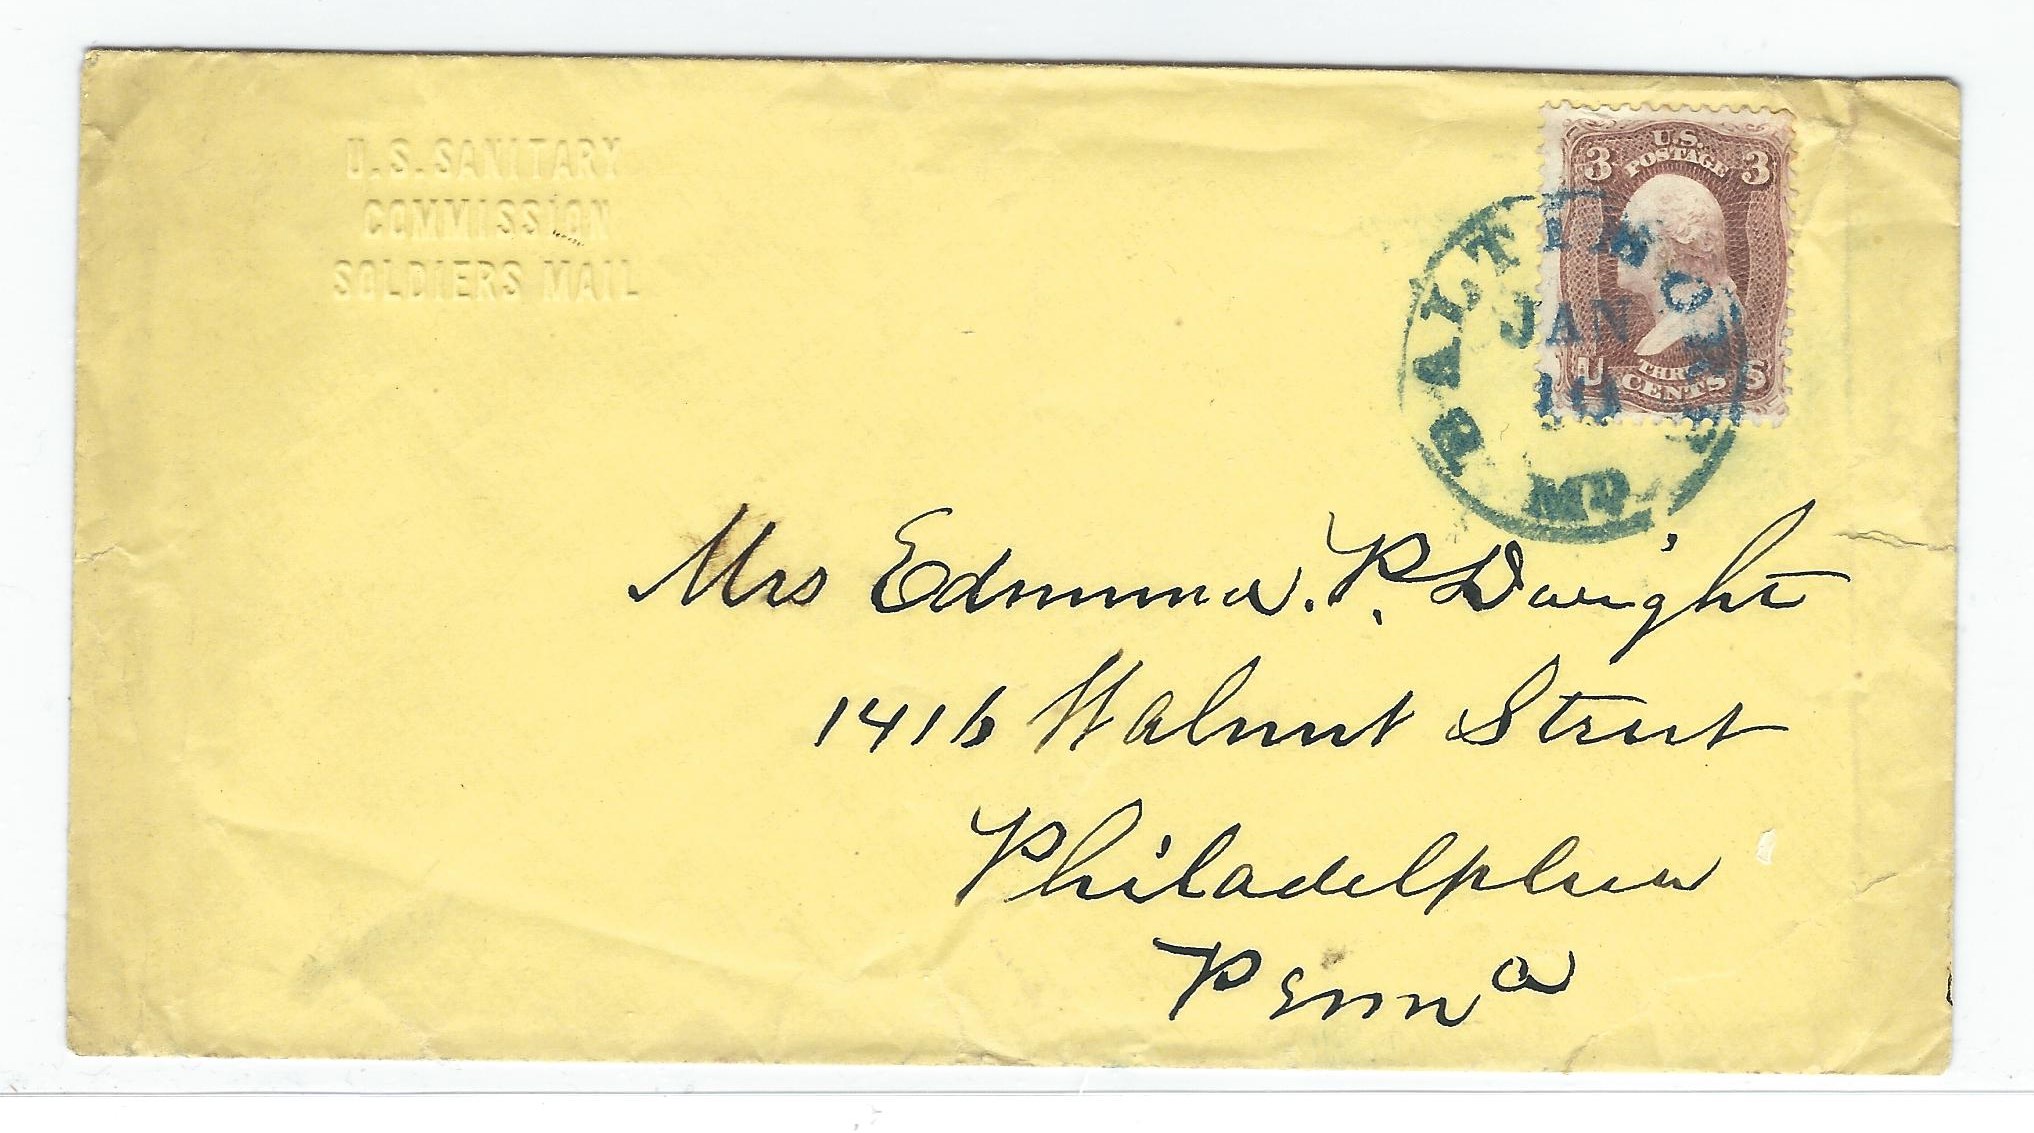 U.S. SANITARY
COMMISSION
SOLDIERS MAIL
U.S.
POSTAGE
3 3
THREE
U CENTS S
BALTIMORE
JAN
MD.
Mrs Edmund. P. Dwight
1416 Walnut Street
Philadelphia
Penna